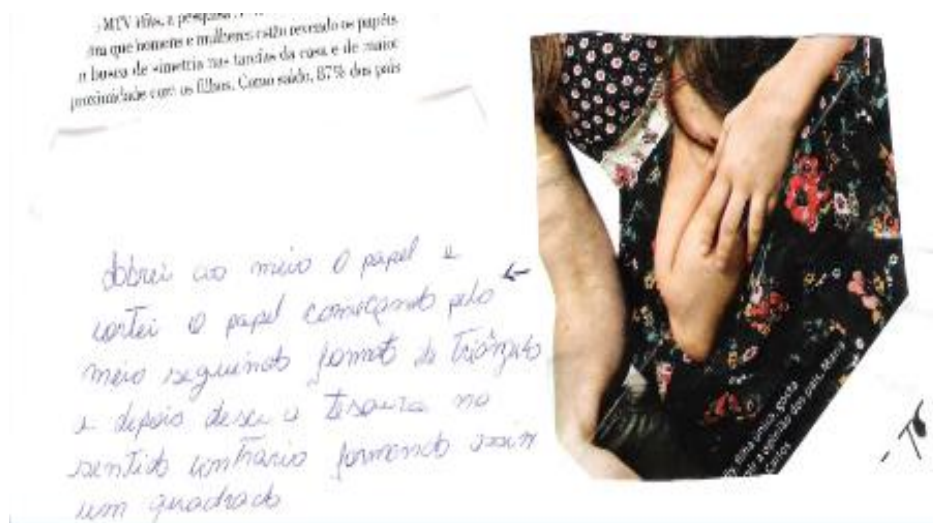 MTV Bits, a pesquisa
que homens e mulheres estão revendo os papéis
busca de simetria nas tarefas da casa e de maior
proximidade com os filhos. Como saldo, 87% dos pais
dobrei ao meio o papel e
cortei o papel começando pelo
meio seguindo formato de triângulo
e depois desci a tesoura no
sentido contrário formando assim
um quadrado
filha única, gosta
a opinião dos pais, Maria
Carlos